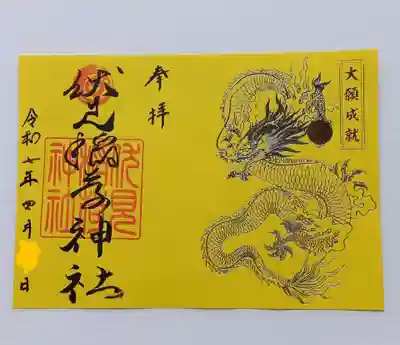 大願成就
奉拝
伏見稲荷神社
伏見
稲荷
神社
令和七年四月 日